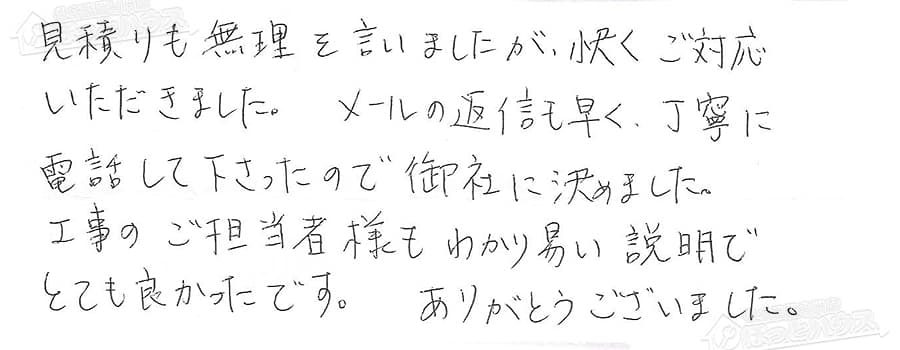 見積りも無理を言いましたが、快くご対応
いただきました。 メールの返信も早く、丁寧に
電話して下さったので御社に決めました。
工事のご担当者様もわかり易い説明で
とても良かったです。 ありがとうございました。